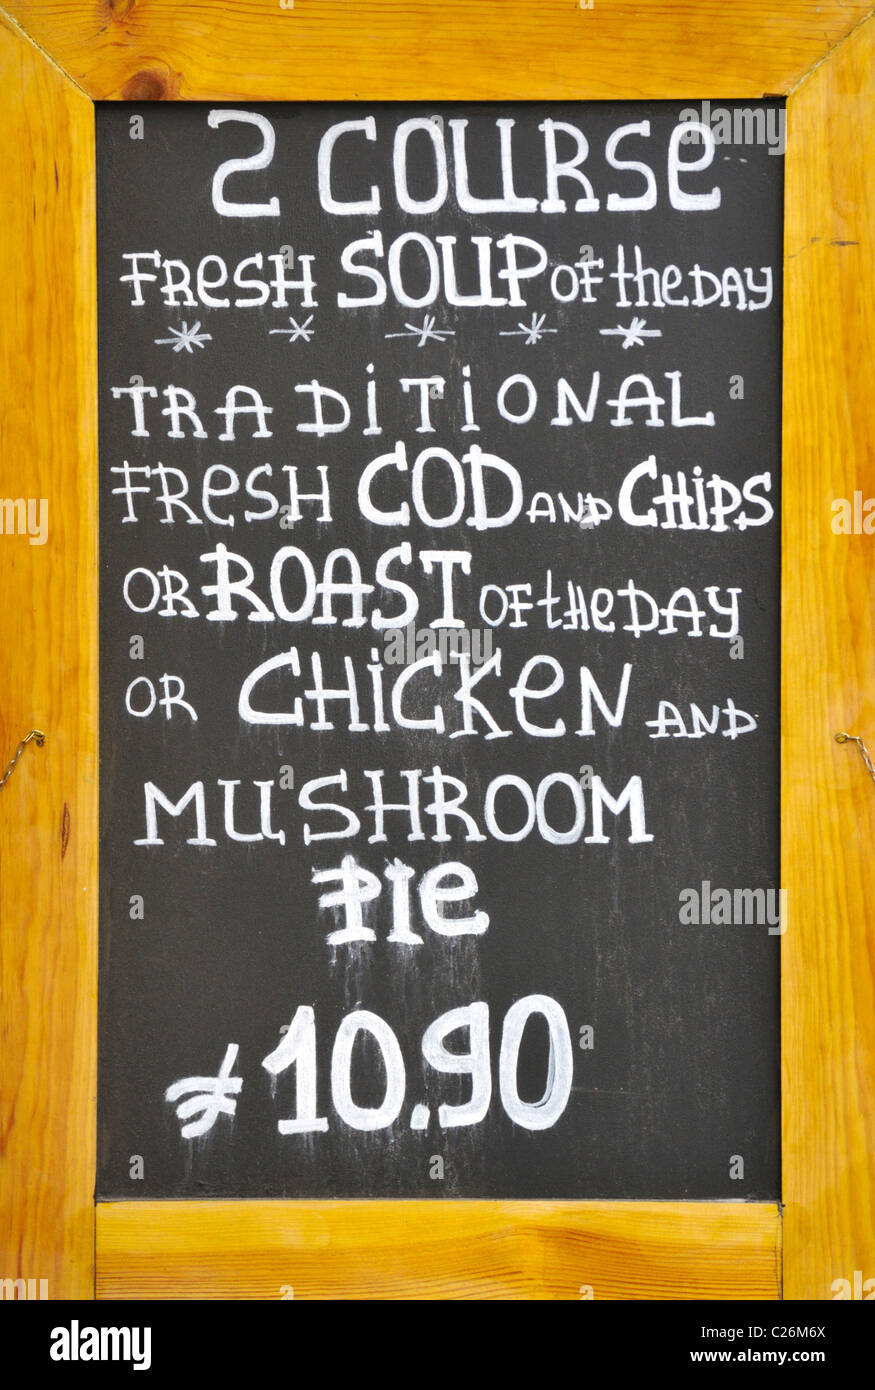 2 COURSE
FReSH SOUP OF the DAY
* * * * *
TRADiTiONAL
FReSH COD AND CHiPS
OR ROAST OF the DAY
OR CHiCKeN AND
MuSHROOM
PIe
£10.90
alamy
Image ID: C26M6X
www.alamy.com